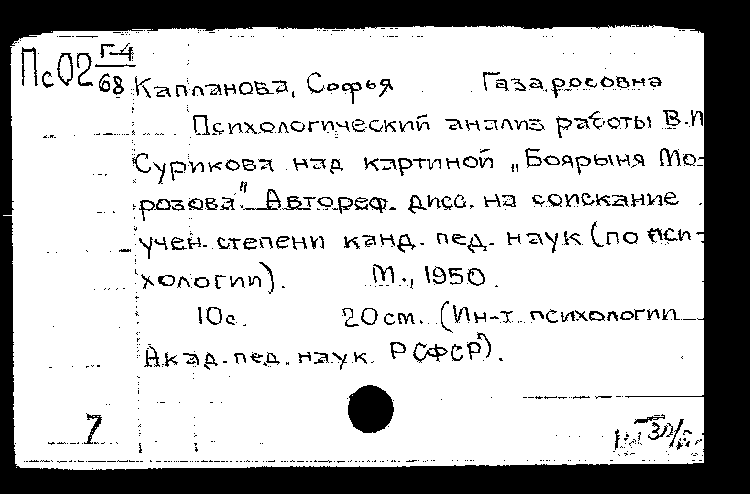 Пс02 Г-4
68 Капланова, Софья Газаросовна
Психологический анализ работы В.И
Сурикова над картиной „Боярыня Мо-
розова" Автореф. дисс. на соискание
учен. степени канд. пед. наук (по пси-
хологии). М., 1950.
10с. 20см. (Ин-т психологии
Акад. пед. наук РСФСР).
7